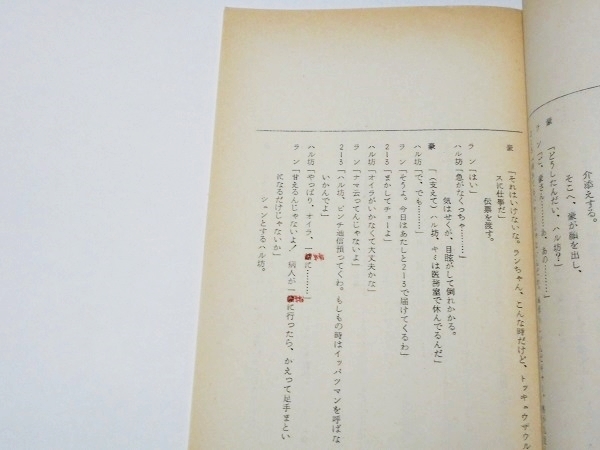 介添えする。
そこへ、豪が顔を出し、
「どうしたんだい、ハル坊?」
豪「それはいけないな。ランちゃん、こんな時だけど、トッキュウザウル
スに仕事だ」
伝票を渡す。
ラン「はい」
ハル坊「急がなくっちゃ………」
気はせくが、目眩がして倒れかかる。
豪「(支えて)ハル坊、キミは医務室で休んでるんだ」
ハル坊「で、でも………」
ラン「そうよ。今日はあたしと2‐3で届けてくるわ」
2‐3「まかしてチョーよ」
ハル坊「オイラがいかなくて大丈夫かな」
ラン「ナマ云ってんじゃないよ」
2‐3「ハル坊、ピンチ通信預ってくわ。もしもの時はイッパツマンを呼ばな
いかんでよ」
ハル坊「やっぱり、オイラ、一に………」
ラン「甘えるんじゃないよ! 病人が一に行ったら、かえって足手まとい
になるだけじゃないか」
シュンとするハル坊。